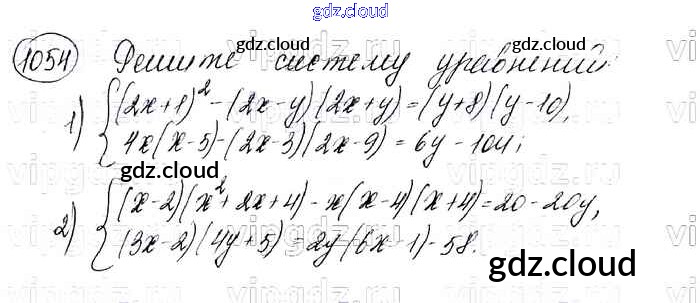 gdz.cloud
1054 Решите систему уравнений:
gdz.cloud
1) { (2x+1)² - (2x-y)(2x+y) = (y+8)(y-10),
4x(x-5) - (2x-3)(2x-9) = 6y - 104;
gdz.cloud
2) { (x-2)(x²+2x+4) - x(x-4)(x+4) = 20 - 20y,
(3x-2)(4y+5) = 2y(6x-1) - 58.
gdz.cloud
gdz.cloud